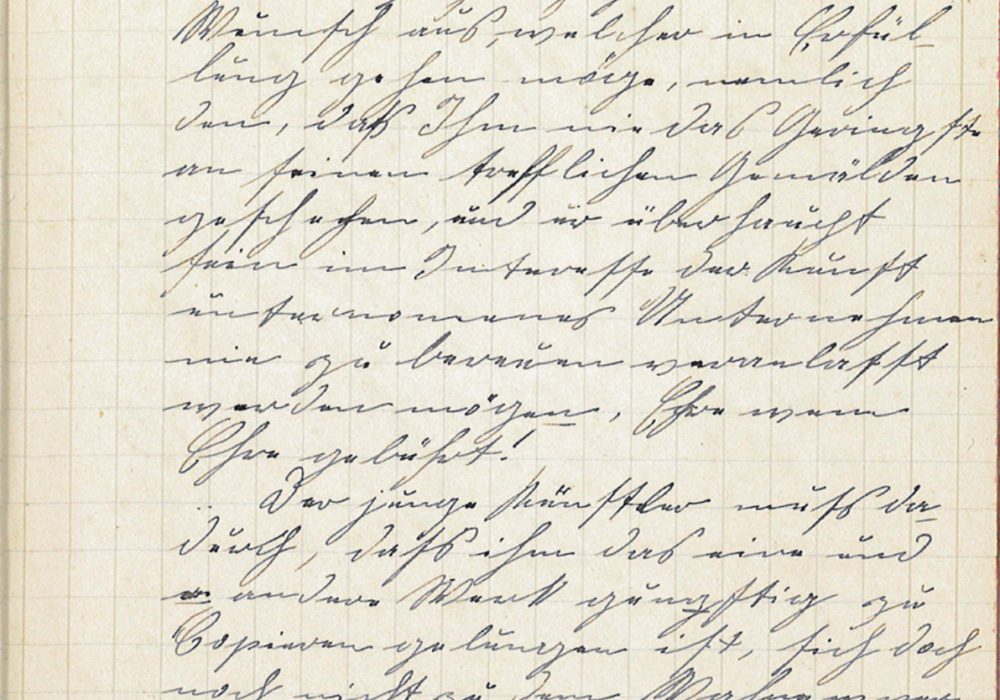 Wunsch aus, welcher in Erfül-
lung gehen möge, nemlich
den, daß Ihm nie das Geringste
an seinen trefflichen Gemälden
geschehen, und er überhaucht
sein im Interesse der Kunst
unternomenes Unternehmen
nie zu bereuen veranlasst
werden mögen, Ehre wem
Ehre gebührt!
Der junge Künstler muß da-
durch, daß ihm das eine und
andere Werk gungstig zu
Copieren gelungen ist, sich doch
noch nicht zu dem